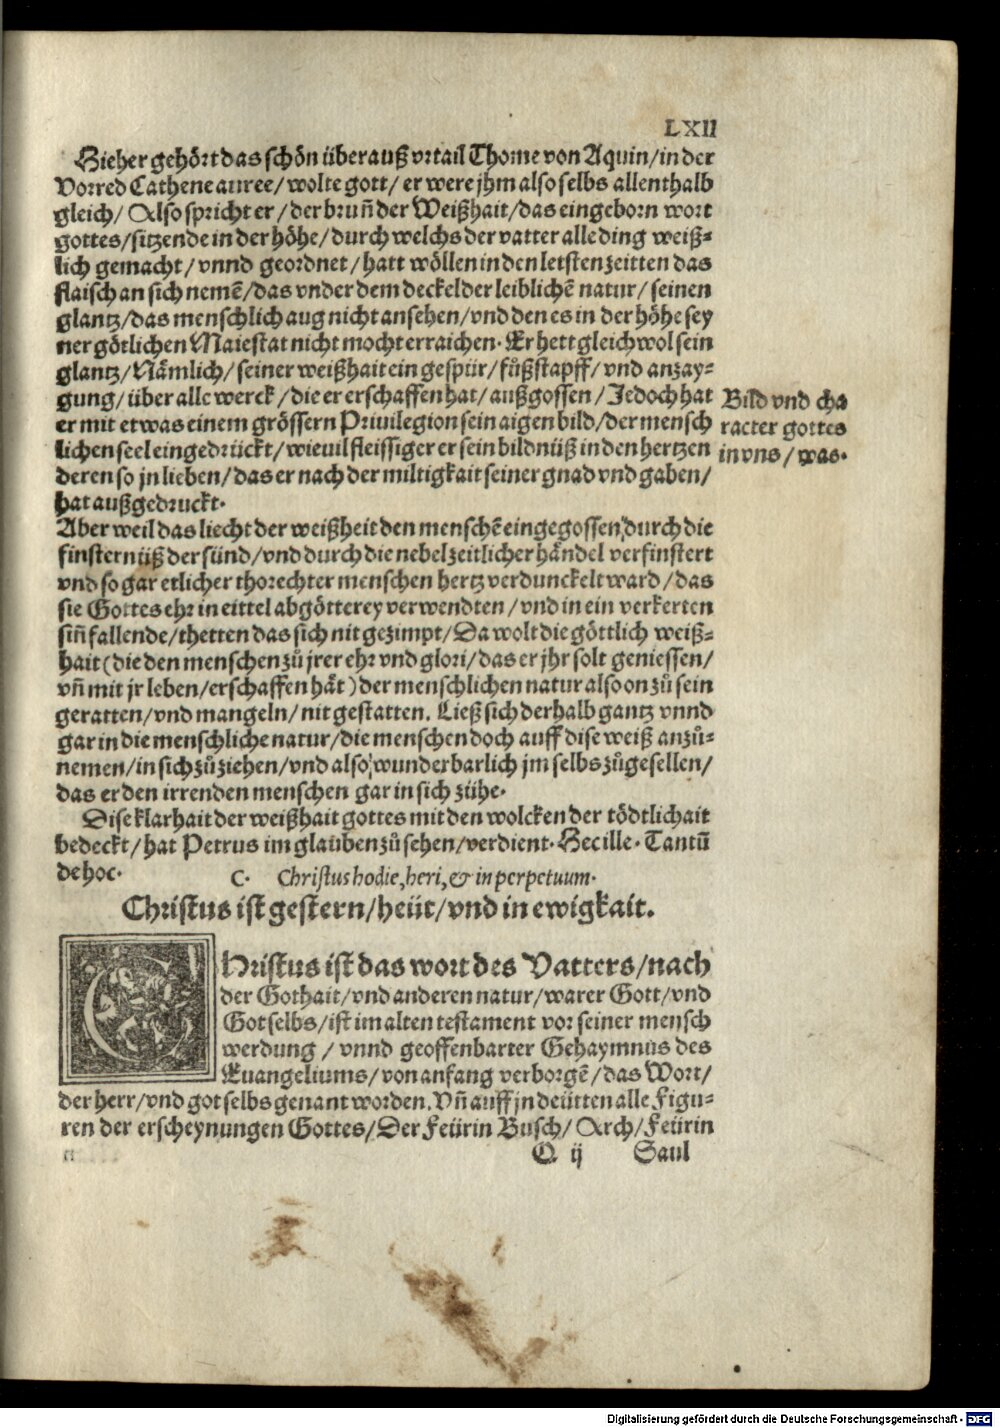 LXII
Hieher gehört das schön überauß vrtail Thome von Aquin/in der
Vorred Cathene auree/wolte gott/er were jhm also selbs allenthalb
gleich/Also spricht er/der bruñ der Weißhait/das eingeborn wort
gottes/sitzende in der höhe/durch welchs der vatter alle ding weiß⸗
lich gemacht/vnnd geordnet/hatt wöllen in den letsten zeitten das
flaisch an sich nemẽ/das vnder dem deckel der leiblichẽ natur/seinen
glantz/das menschlich aug nicht ansehen/vnd den es in der höhe sey
ner götlichen Maiestat nicht mocht erraichen. Er hett gleichwol sein
glantz/Nämlich/seiner weißhait ein gespür/fůßstapff/vnd anzay⸗
gung/über alle werck/die er erschaffen hat/außgossen/Jedoch hat
er mit etwas einem grössern Priuilegion sein aigen bild/der mensch
lichen seel eingedrückt/wieuil fleissiger er sein bildnüß in den hertzen
deren so jn lieben/das er nach der miltigkait seiner gnad vnd gaben/
hat außgedruckt.
Bild vnd cha
racter gottes
in vns/was.
Aber weil das liecht der weißheit den menschẽ eingegossen, durch die
finsternüß der sünd/vnd durch die nebel zeitlicher händel verfinstert
vnd so gar etlicher thorechter menschen hertz verdunckelt ward/das
sie Gottes ehr in eittel abgötterey verwendten/vnd in ein verkerten
siñ fallende/thetten das sich nit gezimpt/Da wolt die göttlich weiß⸗
hait (die den menschen zů jrer ehr vnd glori/das er jhr solt geniessen/
vñ mit jr leben/erschaffen hät) der menschlichen natur also on zů sein
geratten/vnd mangeln/nit gestatten. Ließ sich derhalb gantz vnnd
gar in die menschliche natur/die menschen doch auff dise weiß anzů⸗
nemen/in sich zů ziehen/vnd also, wunderbarlich jm selbs zůgesellen/
das er den irrenden menschen gar in sich zühe.
Dise klarhait der weißhait gottes mit den wolcken der tödtlichait
bedeckt/hat Petrus im glauben zů sehen/verdient. Hec ille. Tantũ
de hoc.
C. Christus hodie, heri, & in perpetuum.
Christus ist gestern/heüt/vnd in ewigkait.
CHristus ist das wort des Vatters/nach
der Gothait/vnd anderen natur/warer Gott/vnd
Got selbs/ist im alten testament vor seiner mensch
werdung/vnnd geoffenbarter Gehaymnus des
Euangeliums/von anfang verborgẽ/das Wort/
der herr/vnd got selbs genant worden. Vñ auff jn deütten alle Figu⸗
ren der erscheynungen Gottes/Der Feürin Busch/Arch/Feürin
Q ij Saul
Digitalisierung gefördert durch die Deutsche Forschungsgemeinschaft - DFG